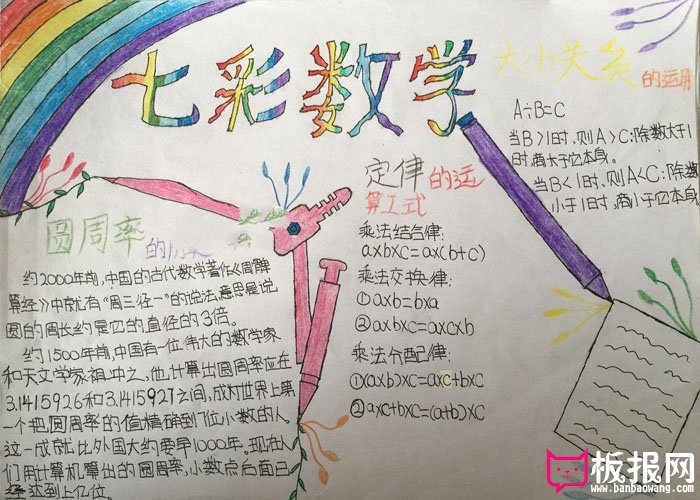 七彩数学
大小关系
的运用
A÷B=C
当B>1时,则A>C:除数大于1
时,商大于它本身。
当B<1时,则A<C:除数
小于1时,商小于它本身
定律的运
算工式
乘法结合律:
a×b×c=a×(b+c)
乘法交换律:
①a×b=b×a
②a×b×c=a×c×b
乘法分配律:
①(a×b)×c=a×c+b×c
②a×c+b×c=(a+b)×c
圆周率
的历史
约2000年前,中国的古代数学著作《周髀
算经》中就有“周三径一”的说法,意思是说
圆的周长约是它的直径的3倍。
约1500年前,中国有一位伟大的数学家
和天文学家祖冲之,他计算出圆周率应在
3.1415926和3.1415927之间,成为世界上第
一个把圆周率的值精确到7位小数的人。
这一成就比外国大约要早1000年。现在人
们用计算机算出的圆周率,小数点后面已
经达到上亿位。
板报网
www.banbaowang.com